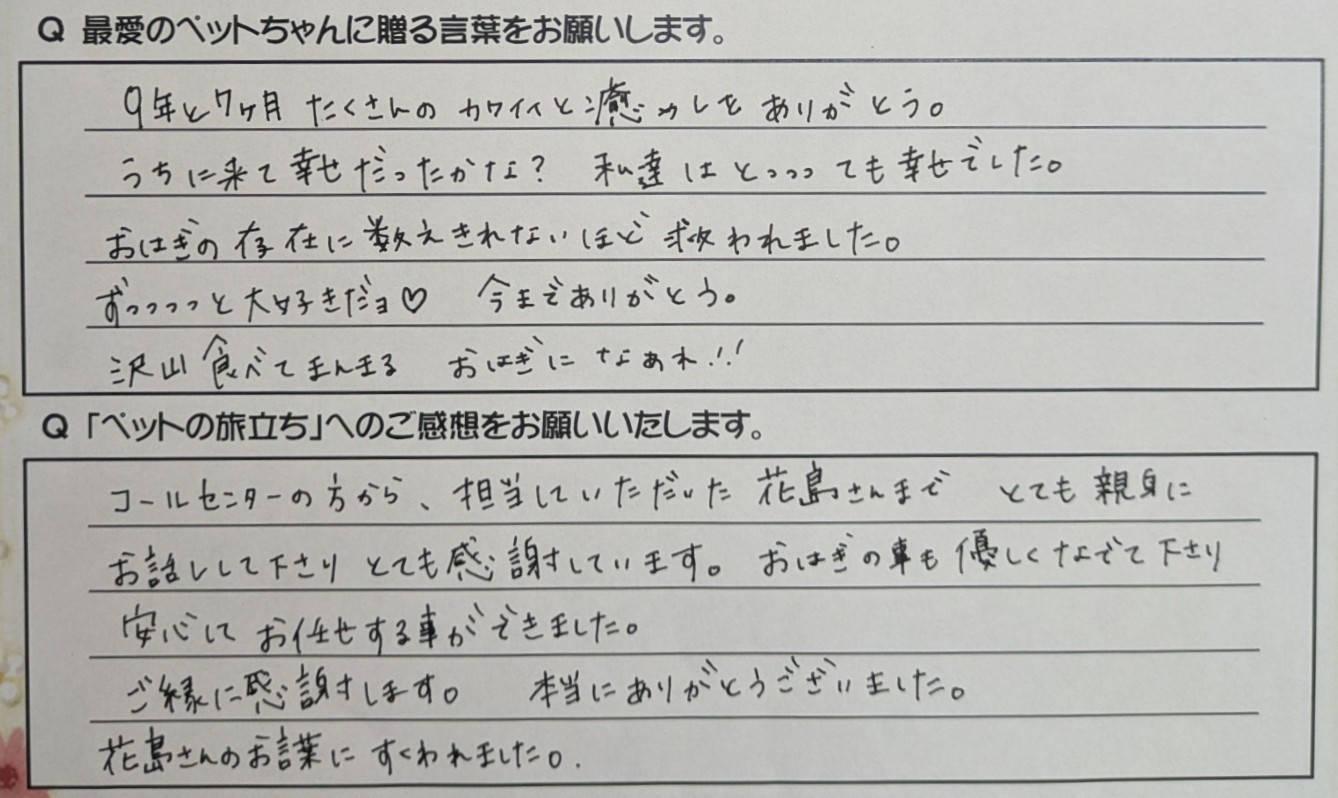 Q 最愛のペットちゃんに贈る言葉をお願いします。
9年と7ヶ月 たくさんの カワイイと癒やしを ありがとう。
うちに来て幸せだったかな? 私達はとっっっても幸せでした。
おはぎの存在に数えきれないほど救われました。
ずっっっっと大好きだョ♡ 今までありがとう。
沢山食べてまんまる おはぎに なあれ!!
Q 「ペットの旅立ち」へのご感想をお願いいたします。
コールセンターの方から、担当していただいた花島さんまで とても親身に
お話しして下さり とても感謝しています。 おはぎの事も優しくなでて下さり
安心して お任せする事ができました。
ご縁に感謝します。 本当にありがとうございました。
花島さんのお言葉に すくわれました。.